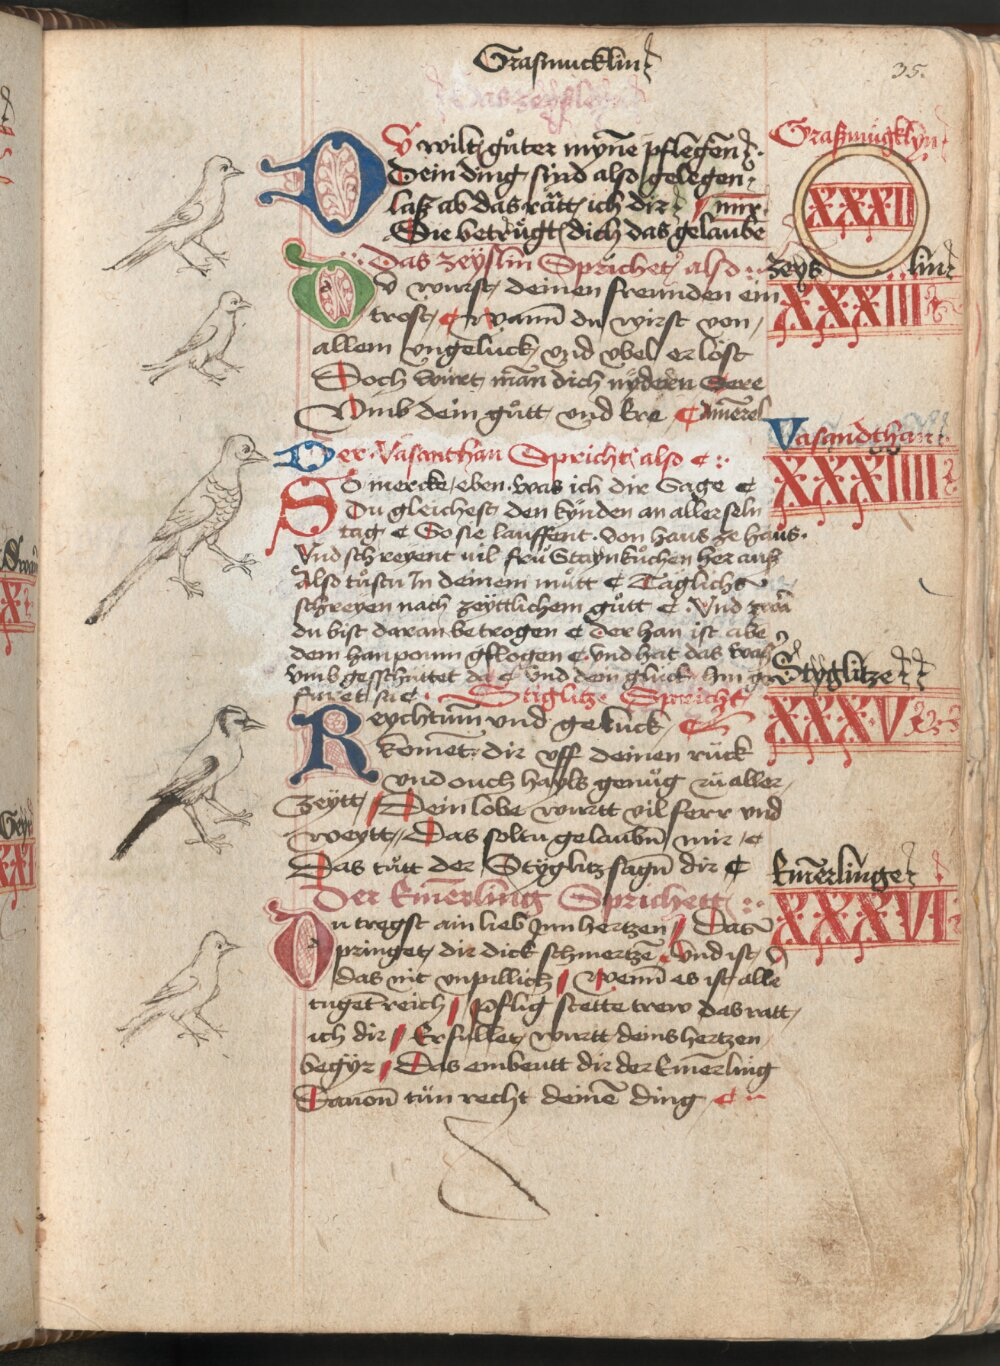 Grasmucklin
35.
DV wilt gůter mỹne pflegen
Dein ding sind also gelegen
laß ab das rätt ich dir mir
Sie betrůgt dich das gelaube
Graßmůgklyn
XXXII
Das zeyslin Sprichet also
DV wurst deinen freunden ein
trost wann du wirst von
allem vngeluck vnd vbel erlöst
Doch würt man dich nyderen Sere
Vmb dein gůtt vnd Ere
zeyslin
XXXIII
Der Vasanthan Spricht also
SO mercke eben was ich dir Sage
Du gleichest den kynden an aller seln
tag So sie lauffent von haus ze haus
Vnd schreyent vil frů Staynkůchen her auß
Also tůstu In deinem můtt Täglichs
schreyen nach zeyttlichem gůtt Vnd
du bist daran betrogen der han ist abe
dem han poum gflogen vnd hat das
vmb geschüttet da vnd dem glück
Vasandthan
XXXIIII
Stiglitz Spricht
Reychtum vnd gelück
komēt dir vff deinen rück
vnd ouch hayls genůg zů aller
Zeytt Dein lobe wurtt vil ferr vnd
weytt Das soltu gelaubn mir
Das tůtt der Stÿglitz sagn dir
Stÿglitze
XXXV
Der Emerling Sprichett
Du tregst ain lieb Inn hertzen Das
pringet dir dick schmertzē Vnd ist
das nit vnpillich Wenn es ist alle
tugēt reich Pflig stette trew das ratt
ich dir Erfüllet wurtt deins hertzen
begÿr Das embeutt dir der Emerling
Dauon tůn recht deinē ding
Emerlinge
XXXVI